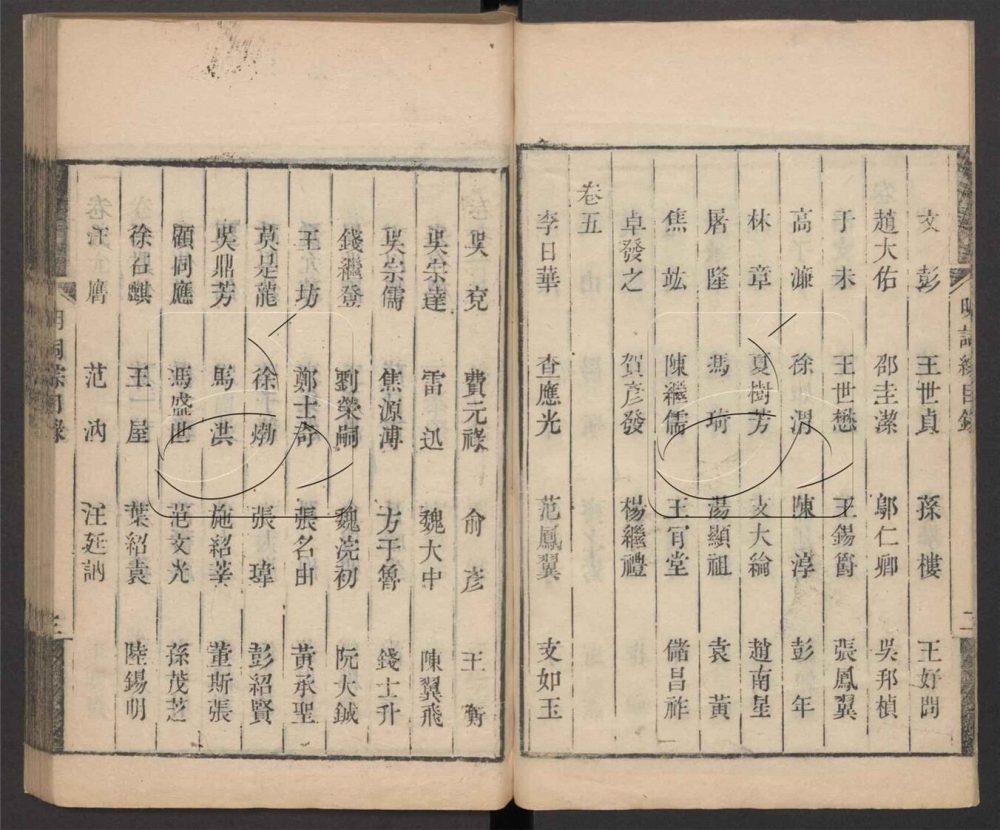 明詞綜目錄 二
文彭 王世貞 孫樓 王好問
趙大佑 邵圭潔 鄔仁卿 吳邦楨
于未 王世懋 王錫爵 張鳳翼
高濂 徐渭 陳淳 彭年
林章 夏樹芳 支大綸 趙南星
屠隆 馮琦 湯顯祖 袁黃
焦竑 陳繼儒 王肯堂 儲昌祚
卓發之 賀彥發 楊繼禮
卷五
李日華 查應光 范鳳翼 支如玉
吳兗 費元祿 俞彥 王衡
吳宗達 雷迅 魏大中 陳翼飛
吳宗儒 焦源溥 方于魯 錢士升
錢繼登 劉榮嗣 魏浣初 阮大鋮
王坊 鄭士奇 張名由 黃承聖
莫是龍 徐 張瑋 彭紹賢
吳鼎芳 馬洪 施紹莘 董斯張
顧同應 馮盛世 范文光 孫茂芝
徐石麒 王屋 葉紹袁 陸錫明
汪膺 范汭 汪廷訥
明詞綜目錄 三